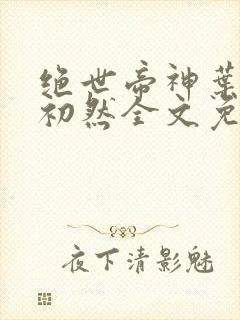 绝世帝神葉
初然全文免
夜下清影魅